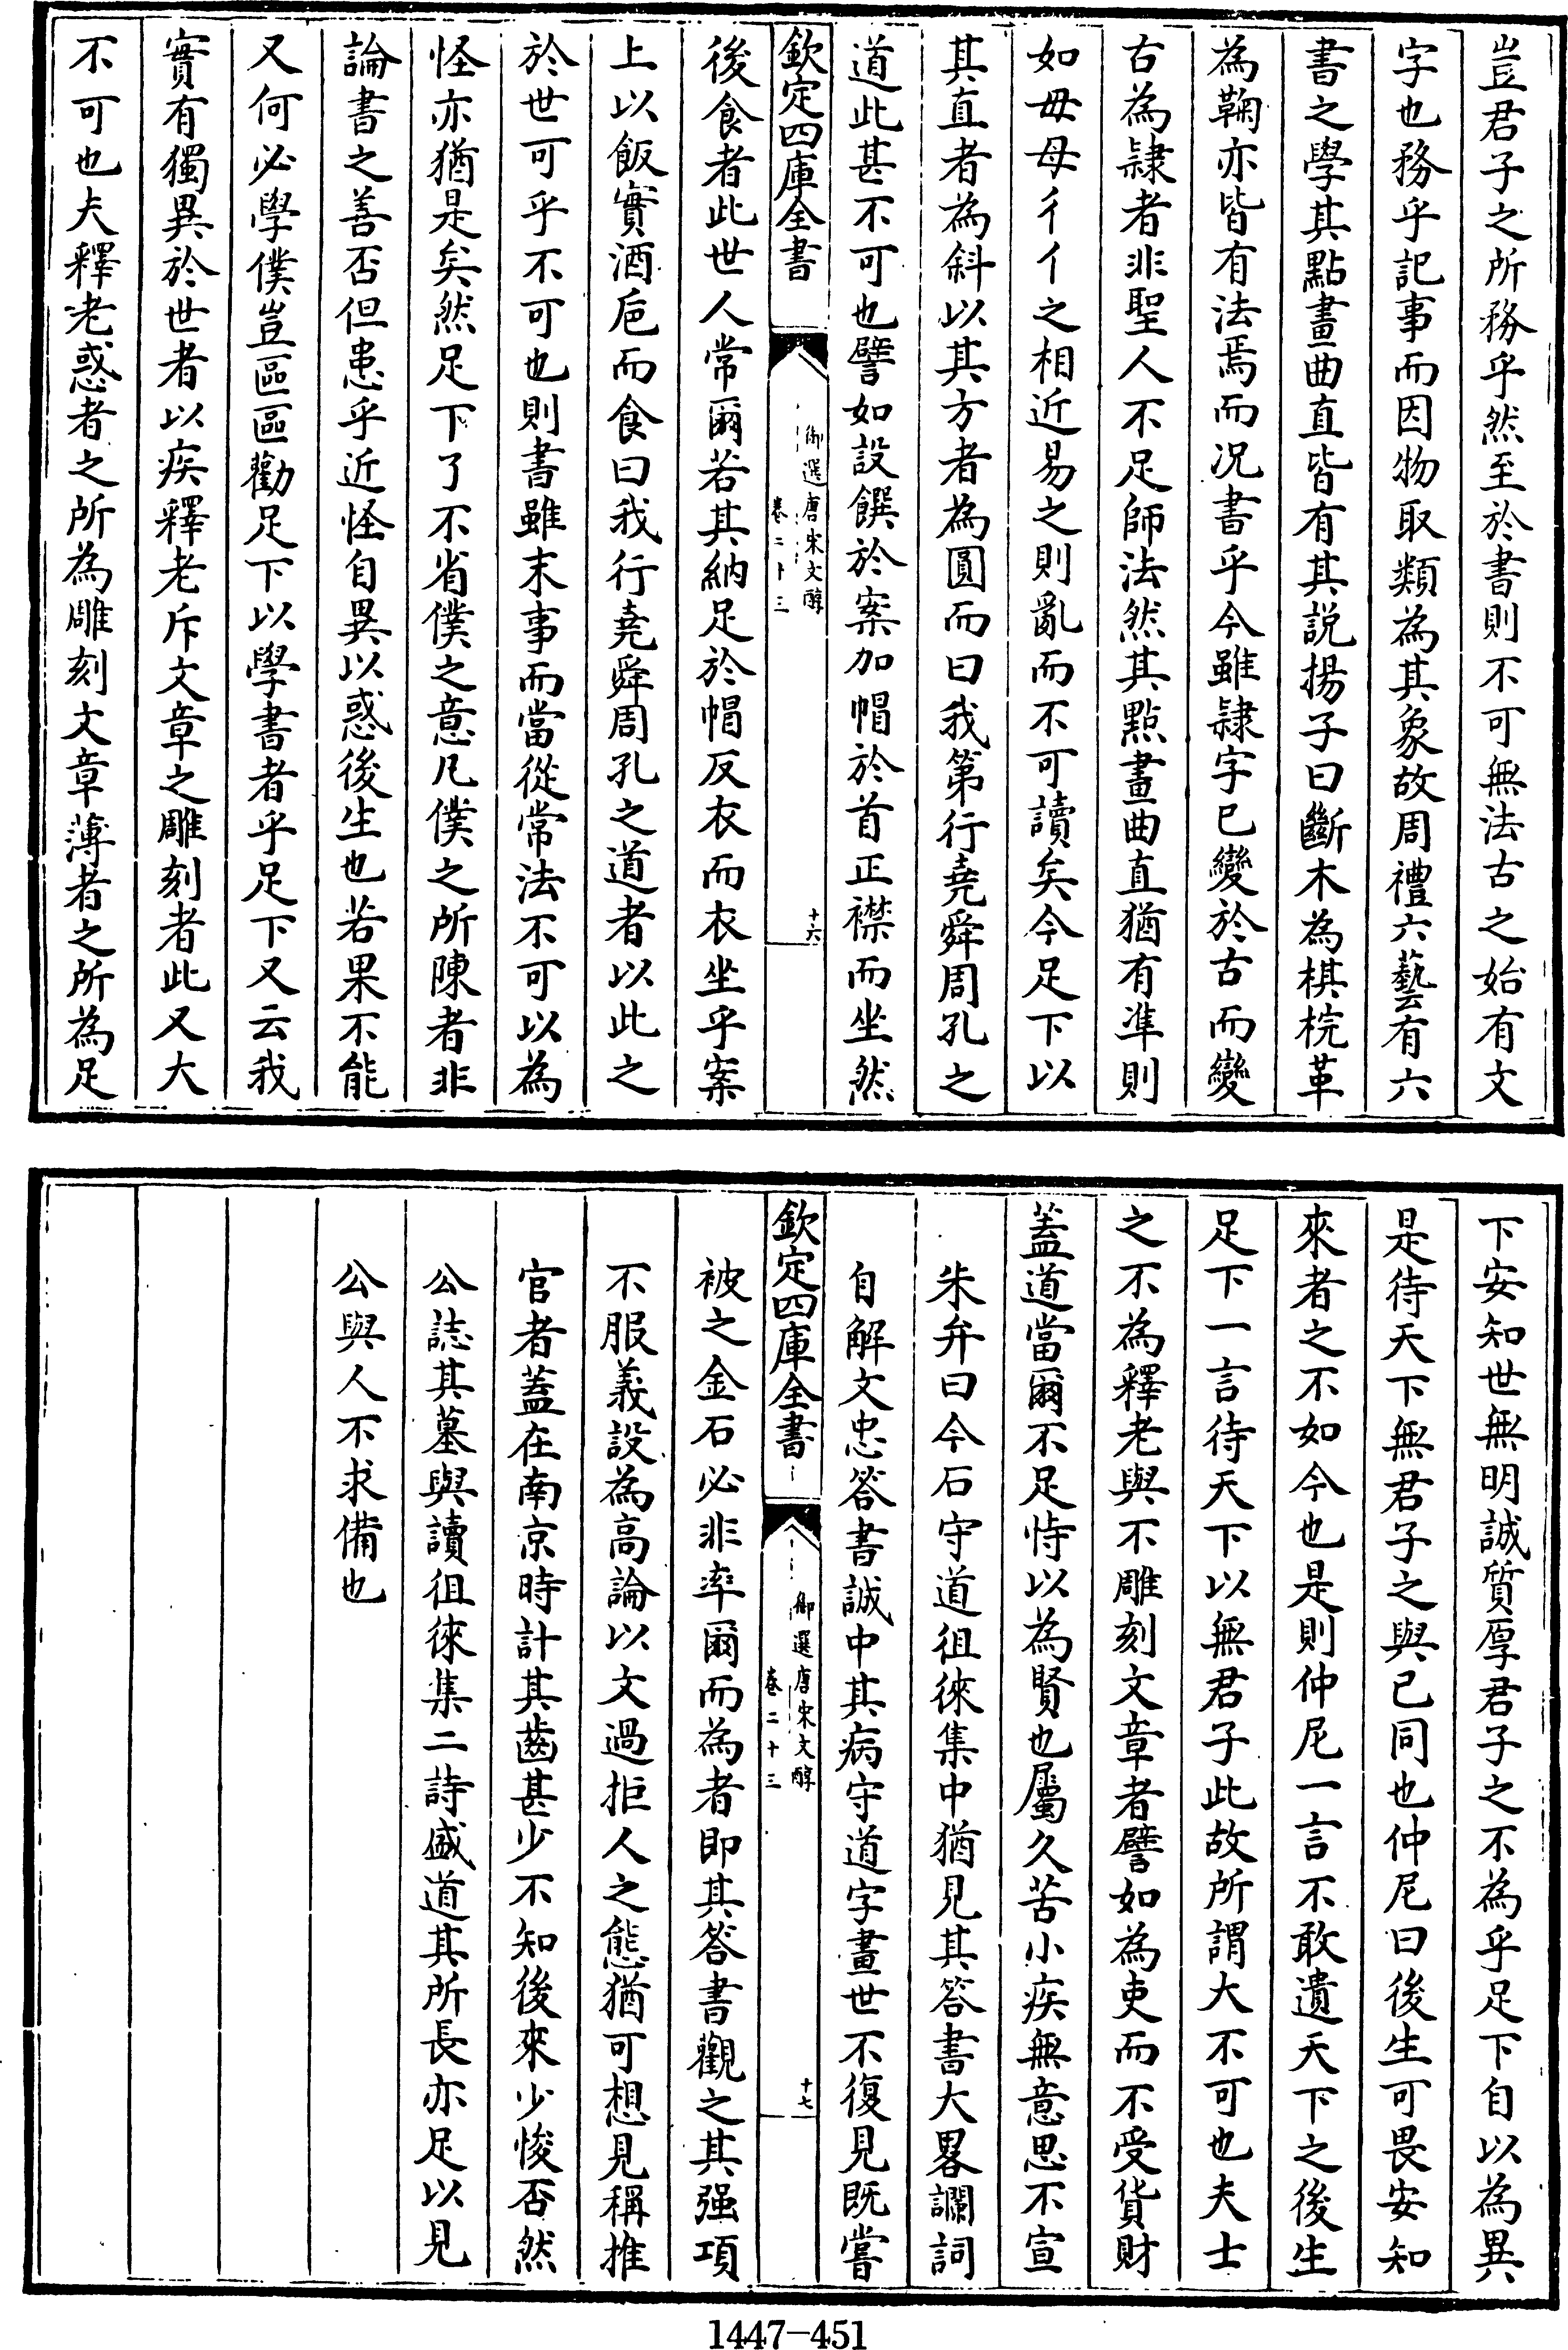 豈君子之所務乎然至於書則不可無法古之始有文
字也務乎記事而因物取類為其象故周禮六藝有六
書之學其點畫曲直皆有其説揚子曰斷木為棋梡革
為鞠亦皆有法焉而况書乎今雖隸字已變於古而變
古為隸者非聖人不足師法然其點畫曲直猶有準則
如毋母彳亻之相近易之則亂而不可讀矣今足下以
其直者為斜以其方者為圓而曰我第行堯舜周孔之
道此甚不可也譬如設饌於案加帽於首正襟而坐然
欽定四庫全書
御選唐宋文醇
卷二十三
十六
後食者此世人常爾若其納足於帽反衣而衣坐乎案
上以飯實酒巵而食曰我行堯舜周孔之道者以此之
於世可乎不可也則書雖末事而當從常法不可以為
怪亦猶是矣然足下了不省僕之意凡僕之所陳者非
論書之善否但患乎近怪自異以惑後生也若果不能
又何必學僕豈區區勸足下以學書者乎足下又云我
實有獨異於世者以疾釋老斥文章之雕刻者此又大
不可也夫釋老惑者之所為雕刻文章薄者之所為足
下安知世無明誠質厚君子之不為乎足下自以為異
是待天下無君子之與已同也仲尼曰後生可畏安知
來者之不如今也是則仲尼一言不敢遺天下之後生
足下一言待天下以無君子此故所謂大不可也夫士
之不為釋老與不雕刻文章者譬如為吏而不受貨財
蓋道當爾不足恃以為賢也屬久苦小疾無意思不宣
朱弁曰今石守道徂徠集中猶見其答書大畧讕詞
自解文忠答書誠中其病守道字畫世不復見既嘗
欽定四庫全書
御選唐宋文醇
卷二十三
十七
被之金石必非率爾而為者即其答書觀之其强項
不服義設為高論以文過拒人之態猶可想見稱推
官者蓋在南京時計其齒甚少不知後來少悛否然
公誌其墓與讀徂徠集二詩盛道其所長亦足以見
公與人不求備也
1447-451